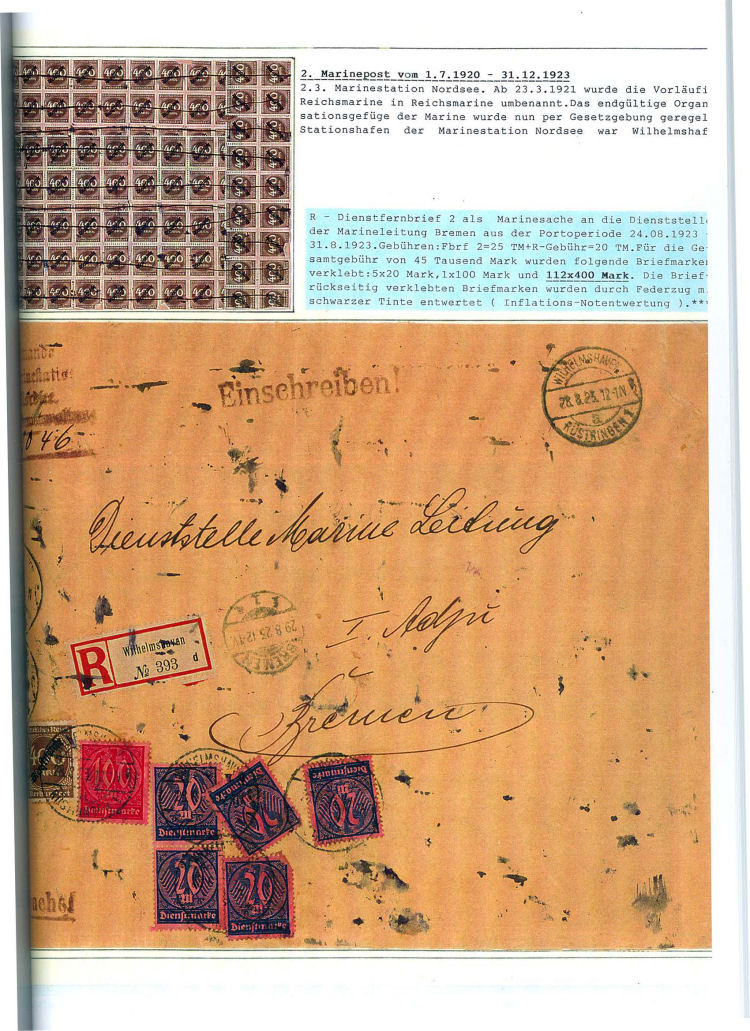 2. Marinepost vom 1.7.1920 - 31.12.1923
2.3. Marinestation Nordsee. Ab 23.3.1921 wurde die Vorläufi
Reichsmarine in Reichsmarine umbenannt.Das endgültige Organ
sationsgefüge der Marine wurde nun per Gesetzgebung geregel
Stationshafen der Marinestation Nordsee war Wilhelmshaf
R - Dienstfernbrief 2 als Marinesache an die Dienststell
der Marineleitung Bremen aus der Portoperiode 24.08.1923 -
31.8.1923.Gebühren:Fbrf 2=25 TM+R-Gebühr=20 TM.Für die Ge
samtgebühr von 45 Tausend Mark wurden folgende Briefmarken
verklebt:5x20 Mark,1x100 Mark und 112x400 Mark. Die Brief-
rückseitig verklebten Briefmarken wurden durch Federzug m.
schwarzer Tinte entwertet ( Inflations-Notentwertung ).**
Einschreiben!
WILHELMSHAVEN
28.8.23. 12-1N
a
RÜSTRINGEN 1
046
Dienststelle Marine Leitung
I. Adju
Bremen
29.8.23 12-1V
BREMEN
R
Wilhelmshaven
№ 393 d
400
100
Dienstmarke
20
m
Dienstmarke
20
m
Dienstmarke
20
m
Dienstmarke
20
m
Dienstmarke
20
Dienstmarke